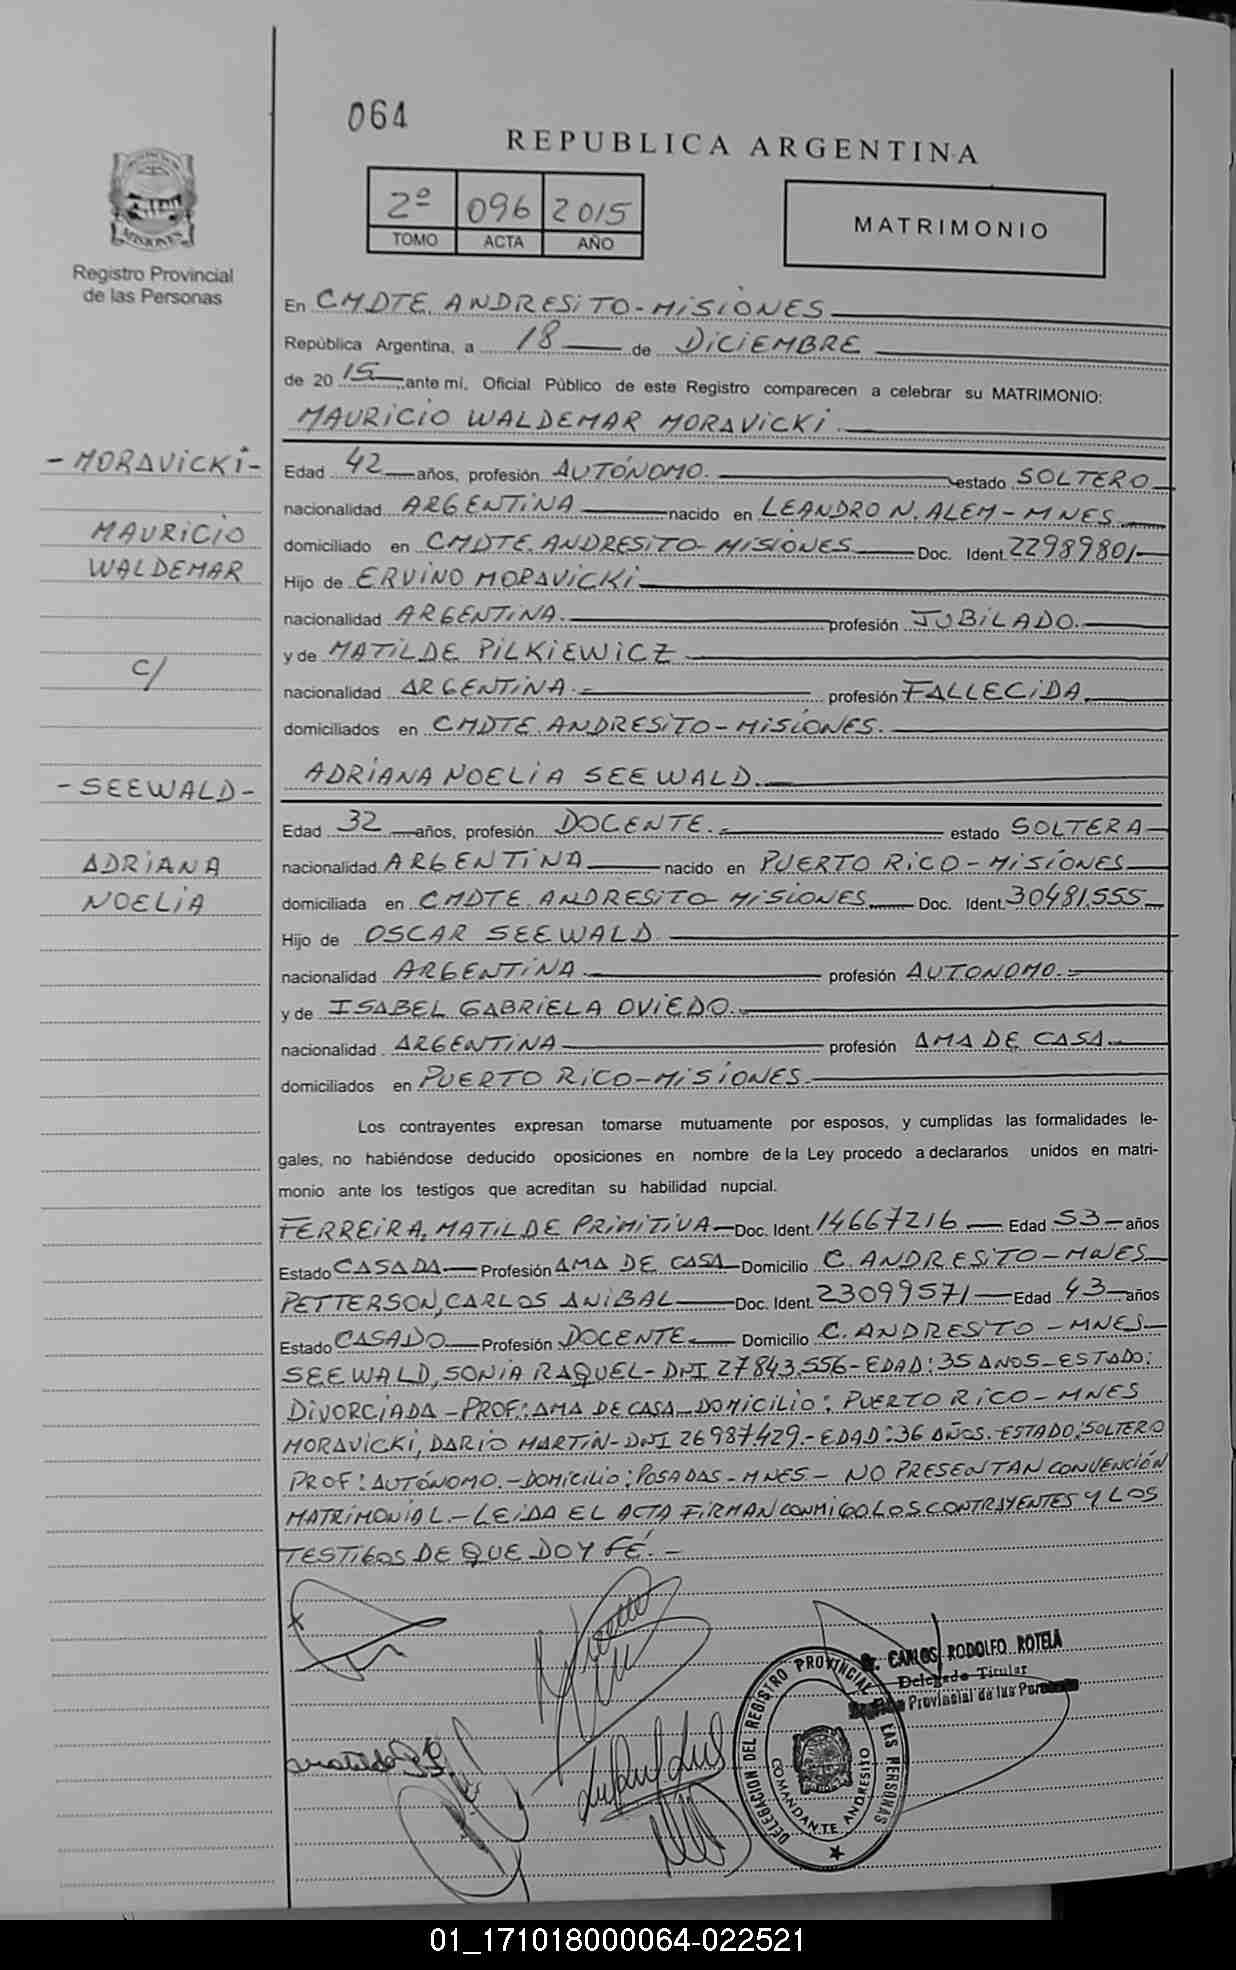 064
REPUBLICA ARGENTINA
2º 096 2015
TOMO ACTA AÑO
MATRIMONIO
MISIONES
Registro Provincial
de las Personas
En CMDTE. ANDRESITO-MISIONES
República Argentina, a 18 de DICIEMBRE
de 2015 ante mi, Oficial Público de este Registro comparecen a celebrar su MATRIMONIO:
MAURICIO WALDEMAR MORAVICKI.
-MORAVICKI-
MAURICIO
WALDEMAR
C/
-SEEWALD-
ADRIANA
NOELIA
Edad 42 años, profesión AUTÓNOMO. estado SOLTERO
nacionalidad ARGENTINA nacido en LEANDRO N. ALEM-MNES
domiciliado en CMDTE. ANDRESITO-MISIONES Doc. Ident. 22989801
Hijo de ERVINO MORAVICKI
nacionalidad ARGENTINA. profesión JUBILADO.
y de MATILDE PILKIEWICZ
nacionalidad ARGENTINA.- profesión FALLECIDA
domiciliados en CMDTE. ANDRESITO-MISIONES.
ADRIANA NOELIA SEEWALD.
Edad 32 años, profesión DOCENTE.- estado SOLTERA
nacionalidad ARGENTINA nacido en PUERTO RICO-MISIONES
domiciliada en CMDTE. ANDRESITO-MISIONES Doc. Ident. 30481.555
Hijo de OSCAR SEEWALD
nacionalidad ARGENTINA. profesión AUTONOMO.-
y de ISABEL GABRIELA OVIEDO.
nacionalidad ARGENTINA profesión AMA DE CASA.
domiciliados en PUERTO RICO-MISIONES.
Los contrayentes expresan tomarse mutuamente por esposos, y cumplidas las formalidades le-
gales, no habiéndose deducido oposiciones en nombre de la Ley procedo a declararlos unidos en matri-
monio ante los testigos que acreditan su habilidad nupcial.
FERREIRA, MATILDE PRIMITIVA Doc. Ident. 14667216 Edad 53 años
Estado CASADA Profesión AMA DE CASA Domicilio C. ANDRESITO-MNES
PETTERSON, CARLOS ANIBAL Doc. Ident. 23099571 Edad 43 años
Estado CASADO Profesión DOCENTE Domicilio C. ANDRESITO-MNES
SEEWALD, SONIA RAQUEL-DNI 27843.556-EDAD: 35 AÑOS-ESTADO:
DIVORCIADA-PROF.: AMA DE CASA-DOMICILIO: PUERTO RICO-MNES
MORAVICKI, DARIO MARTIN-DNI 26987.429.-EDAD: 36 AÑOS.-ESTADO: SOLTERO
PROF: AUTÓNOMO.-DOMICILIO: POSADAS-MNES- NO PRESENTAN CONVENCIÓN
MATRIMONIAL.-LEIDA EL ACTA FIRMAN CONMIGO LOS CONTRAYENTES Y LOS
TESTIGOS DE QUE DOY FÉ.-
CARLOS RODOLFO ROTELA
Delegado Titular
Provincial de las Personas
DELEGACION DEL REGISTRO PROVINCIAL DE LAS PERSONAS
COMANDANTE ANDRESITO
01_171018000064-022521